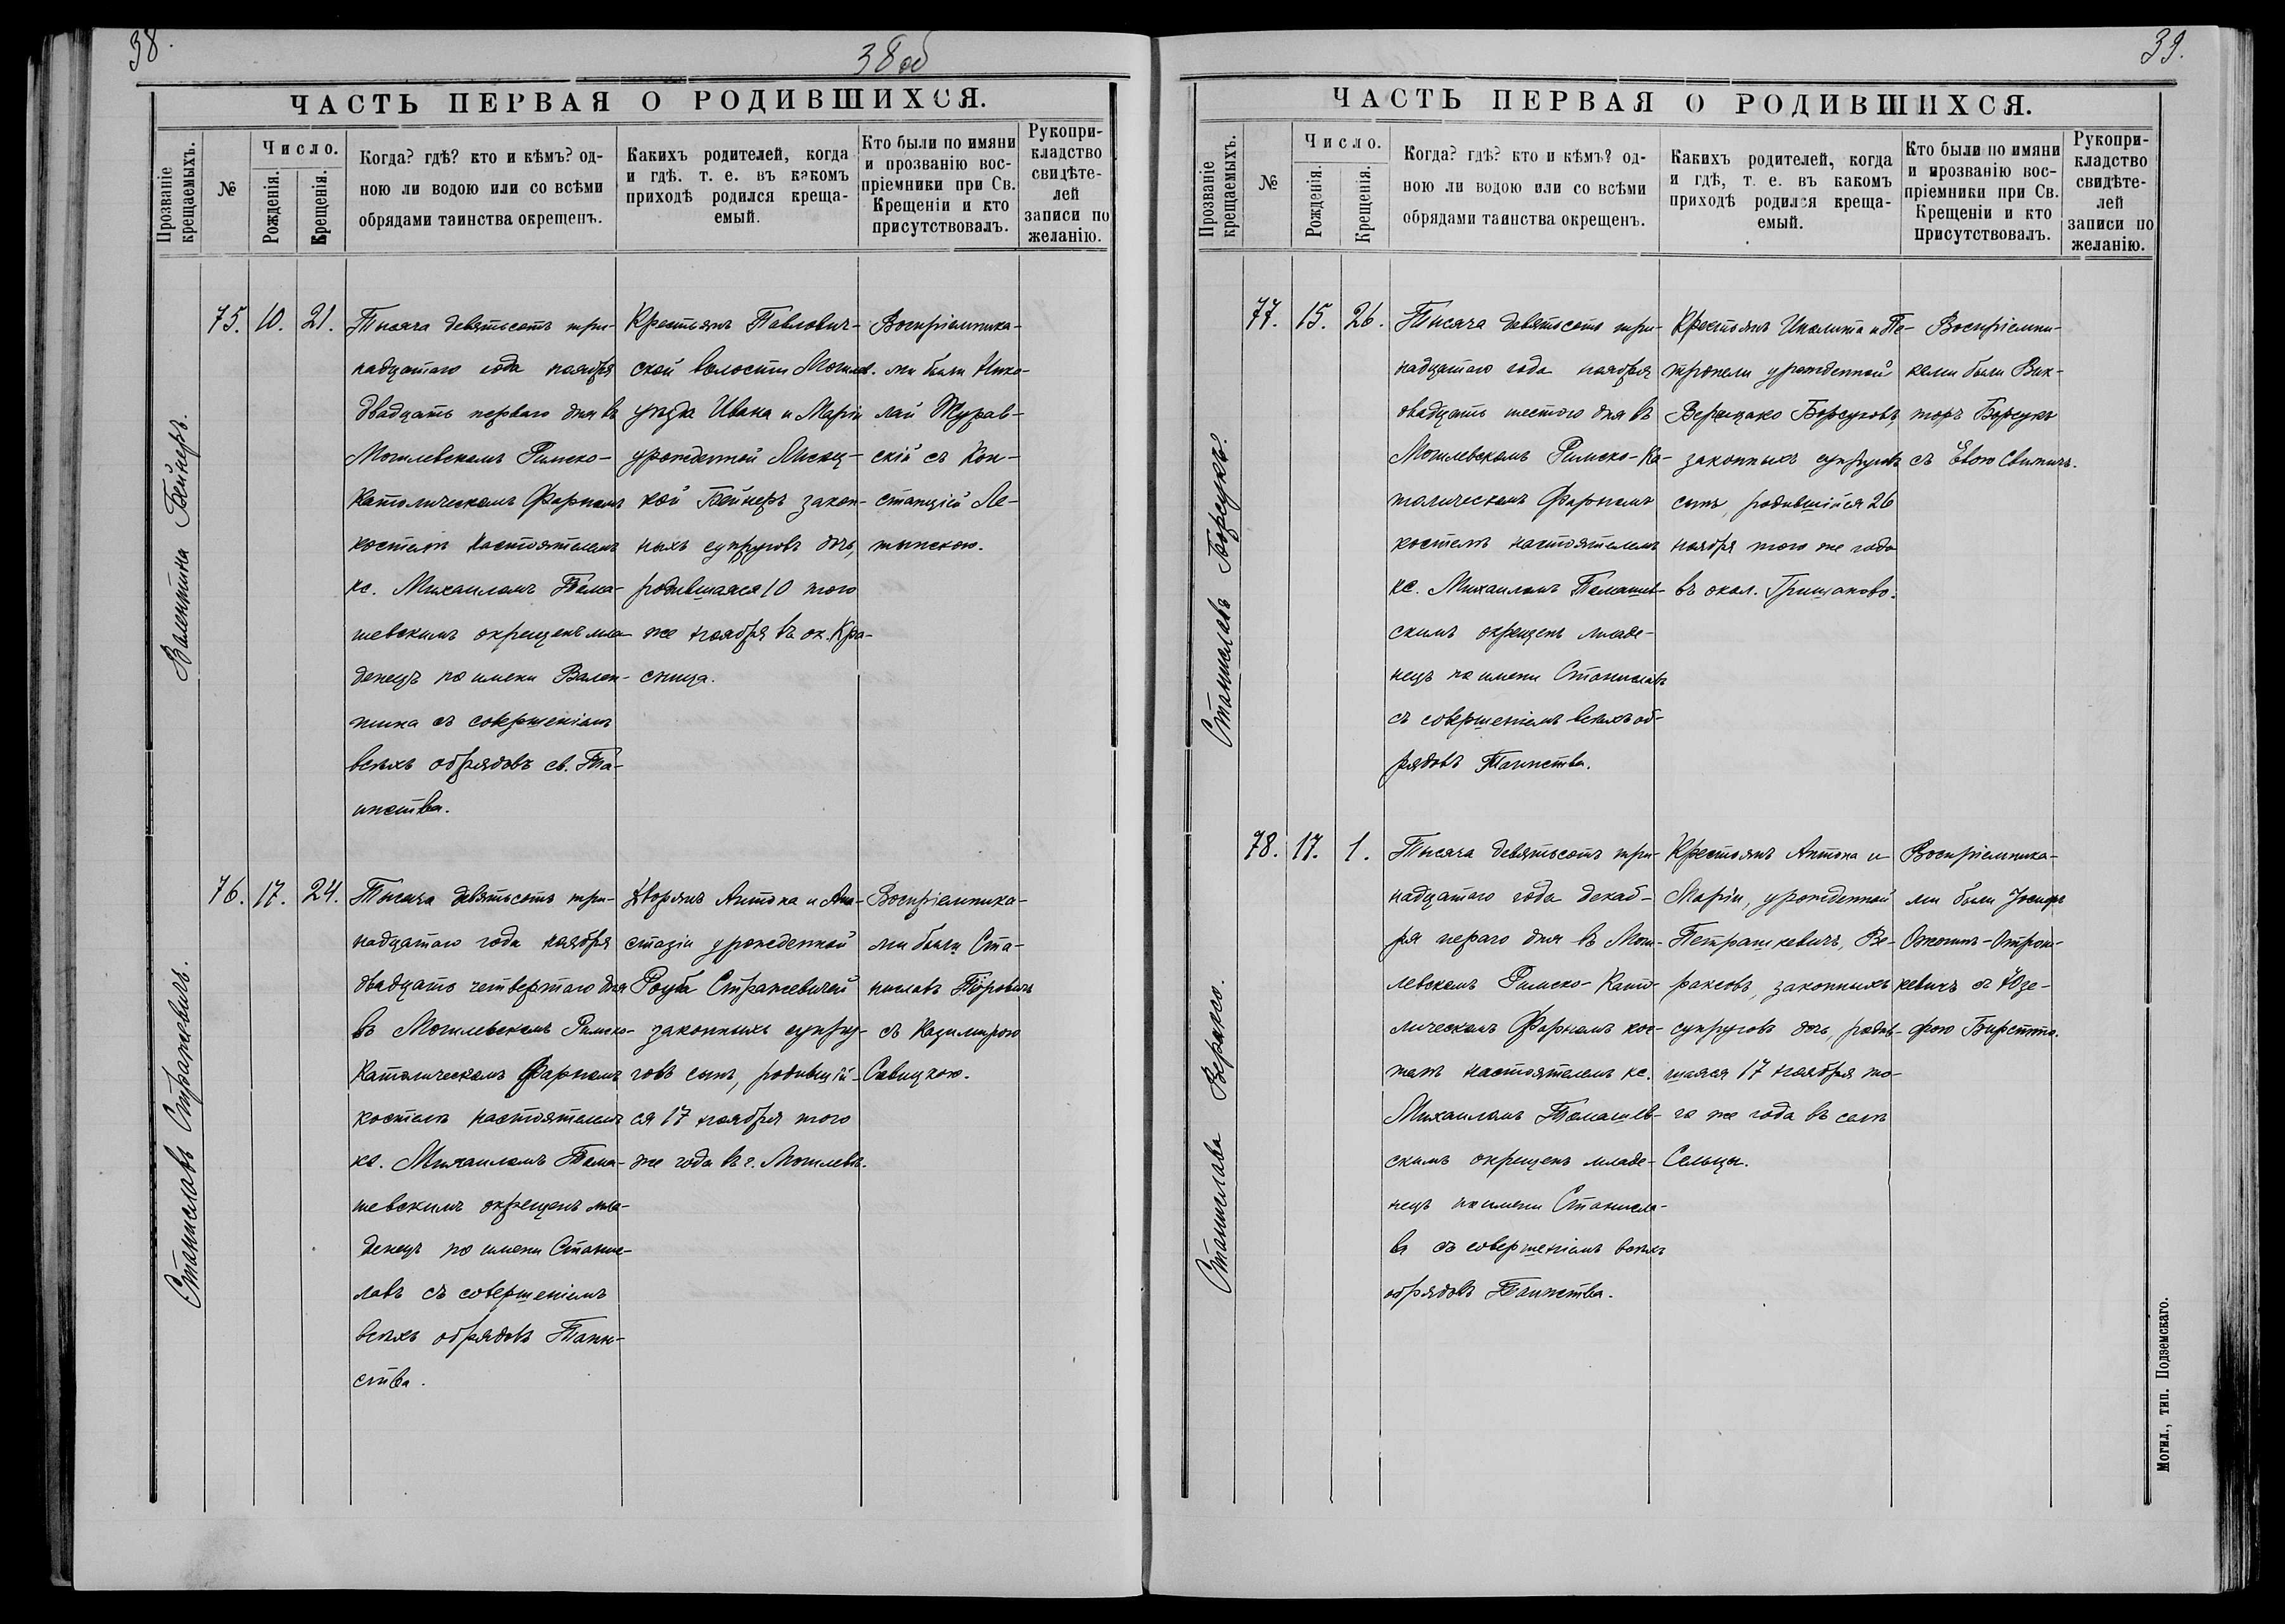 38.
38 об
ЧАСТЬ ПЕРВАЯ О РОДИВШИХСЯ.
Прозваніе крещаемыхъ.
№
Число.
Рожденія.
Крещенія.
Когда? гдѣ? кто и кѣмъ? од-
ною ли водою или со всѣми
обрядами таинства окрещенъ.
Какихъ родителей, когда
и гдѣ. т. е. въ какомъ
приходѣ родился креща-
емый.
Кто были по имяни
и прозванію вос-
пріемники при Св.
Крещеніи и кто
присутствовалъ.
Рукопри-
кладство
свидѣте-
лей
записи по
желанію.
Валентина Бейнеръ.
75. 10. 21.
Тысяча девятьсотъ три-
надцатаго года ноября
двадцать перваго дня въ
Могилевскомъ Римско-
Католическомъ Фарномъ
костелѣ настоятелемъ
кс. Михаиломъ Тома-
шевскимъ окрещенъ мла-
денецъ по имени Вален-
тина съ совершеніемъ
всѣхъ обрядовъ св. Та-
инства.
Крестьянъ Павлович-
ской волости Могилев.
уѣзда Ивана и Маріи
урожденной Лисец-
кой Бейнеръ закон-
ныхъ супруговъ дочь,
родившаяся 10 того
же ноября въ ок. Кра-
сница.
Воспріемника-
ми были Нико-
лай Журав-
скій съ Кон-
станціей Ле-
тынскою.
Станиславъ Стражевичъ.
76. 17. 24.
Тысяча девятьсотъ три-
надцатаго года ноября
двадцать четвертаго дня
въ Могилевскомъ Римско-
Католическомъ Фарномъ
костелѣ настоятелемъ
кс. Михаиломъ Тома-
шевскимъ окрещенъ мла-
денецъ по имени Станис-
лавъ съ совершеніемъ
всѣхъ обрядовъ Таин-
ства.
Дворянъ Антона и Ана-
стазіи урожденной
Роуба Стражевичей
законныхъ супру-
говъ сынъ, родившій-
ся 17 ноября того
же года въ г. Могилевѣ.
Воспріемника-
ми были Ста-
ниславъ Піровичъ
съ Казимирою
Савицкою.
39.
ЧАСТЬ ПЕРВАЯ О РОДИВШИХСЯ.
Прозваніе крещаемыхъ.
№
Число.
Рожденія.
Крещенія.
Когда? гдѣ? кто и кѣмъ? од-
ною ли водою или со всѣми
обрядами таинства окрещенъ.
Какихъ родителей, когда
и гдѣ, т. е. въ какомъ
приходѣ родился креща-
емый.
Кто были по имяни
и прозванію вос-
пріемники при Св.
Крещеніи и кто
присутствовалъ.
Рукопри-
кладство
свидѣте-
лей
записи по
желанію.
Станиславъ Борсукъ.
77. 15. 26.
Тысяча девятьсотъ три-
надцатаго года ноября
двадцать шестого дня въ
Могилевскомъ Римско-Ка-
толическомъ Фарномъ
костелѣ настоятелемъ
кс. Михаиломъ Томашев-
скимъ окрещенъ младе-
нецъ по имени Станиславъ
съ совершеніемъ всѣхъ об-
рядовъ Таинства.
Крестьянъ Иполита и Пе-
тронели урожденной
Верещако Борсуковъ,
законныхъ супруговъ
сынъ, родившійся 26
ноября того же года
въ окол. Грищаково.
Воспріемни-
ками были Вик-
торъ Борсукъ
съ Евою Свиничъ.
Станислава Вераксо.
78. 17. 1.
Тысяча девятьсотъ три-
надцатаго года декаб-
ря перваго дня въ Моги-
левскомъ Римско-Като-
лическомъ Фарномъ кос-
телѣ настоятелемъ кс.
Михаиломъ Томашев-
скимъ окрещенъ младе-
нецъ по имени Станисла-
ва съ совершеніемъ всѣхъ
обрядовъ Таинства.
Крестьянъ Антона и
Маріи, урожденной
Петрашкевичъ, Ве-
раксовъ, законныхъ
супруговъ дочь, родив-
шаяся 17 ноября то-
го же года въ селѣ
Сельцы.
Воспріемника-
ми были Іосифъ
кевичъ съ Юзе-
фою
Могил., тип. Подземскаго.